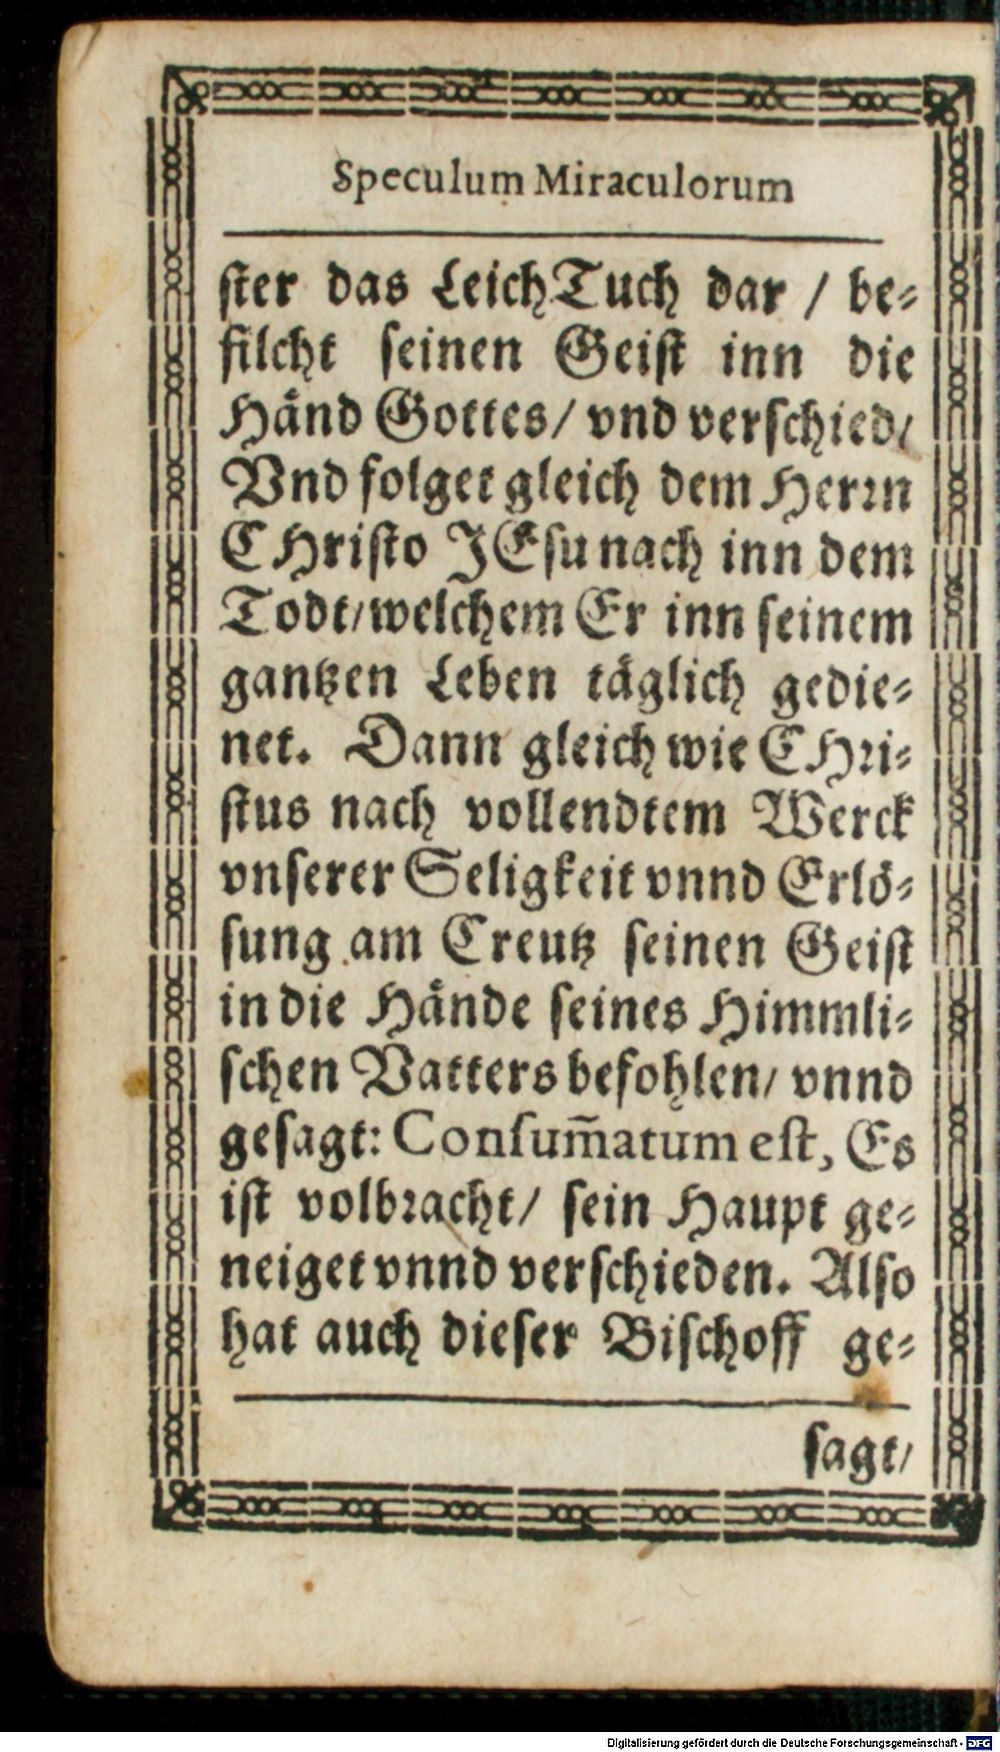 Speculum Miraculorum
ster das LeichTuch dar / be⸗
filcht seinen Geist inn die
Händ Gottes/ vnd verschied/
Vnd folget gleich dem Herrn
CHristo JEsu nach inn dem
Todt/ welchem Er inn seinem
gantzen Leben täglich gedie⸗
net. Dann gleich wie CHri⸗
stus nach vollendtem Werck
vnserer Seligkeit vnnd Erlö⸗
sung am Creutz seinen Geist
in die Hände seines Himmli⸗
schen Vatters befohlen/ vnnd
gesagt: Consum̃atum est, Es
ist volbracht/ sein Haupt ge⸗
neiget vnnd verschieden. Also
hat auch dieser Bischoff ge⸗
sagt/
Digitalisierung gefördert durch die Deutsche Forschungsgemeinschaft - DFG